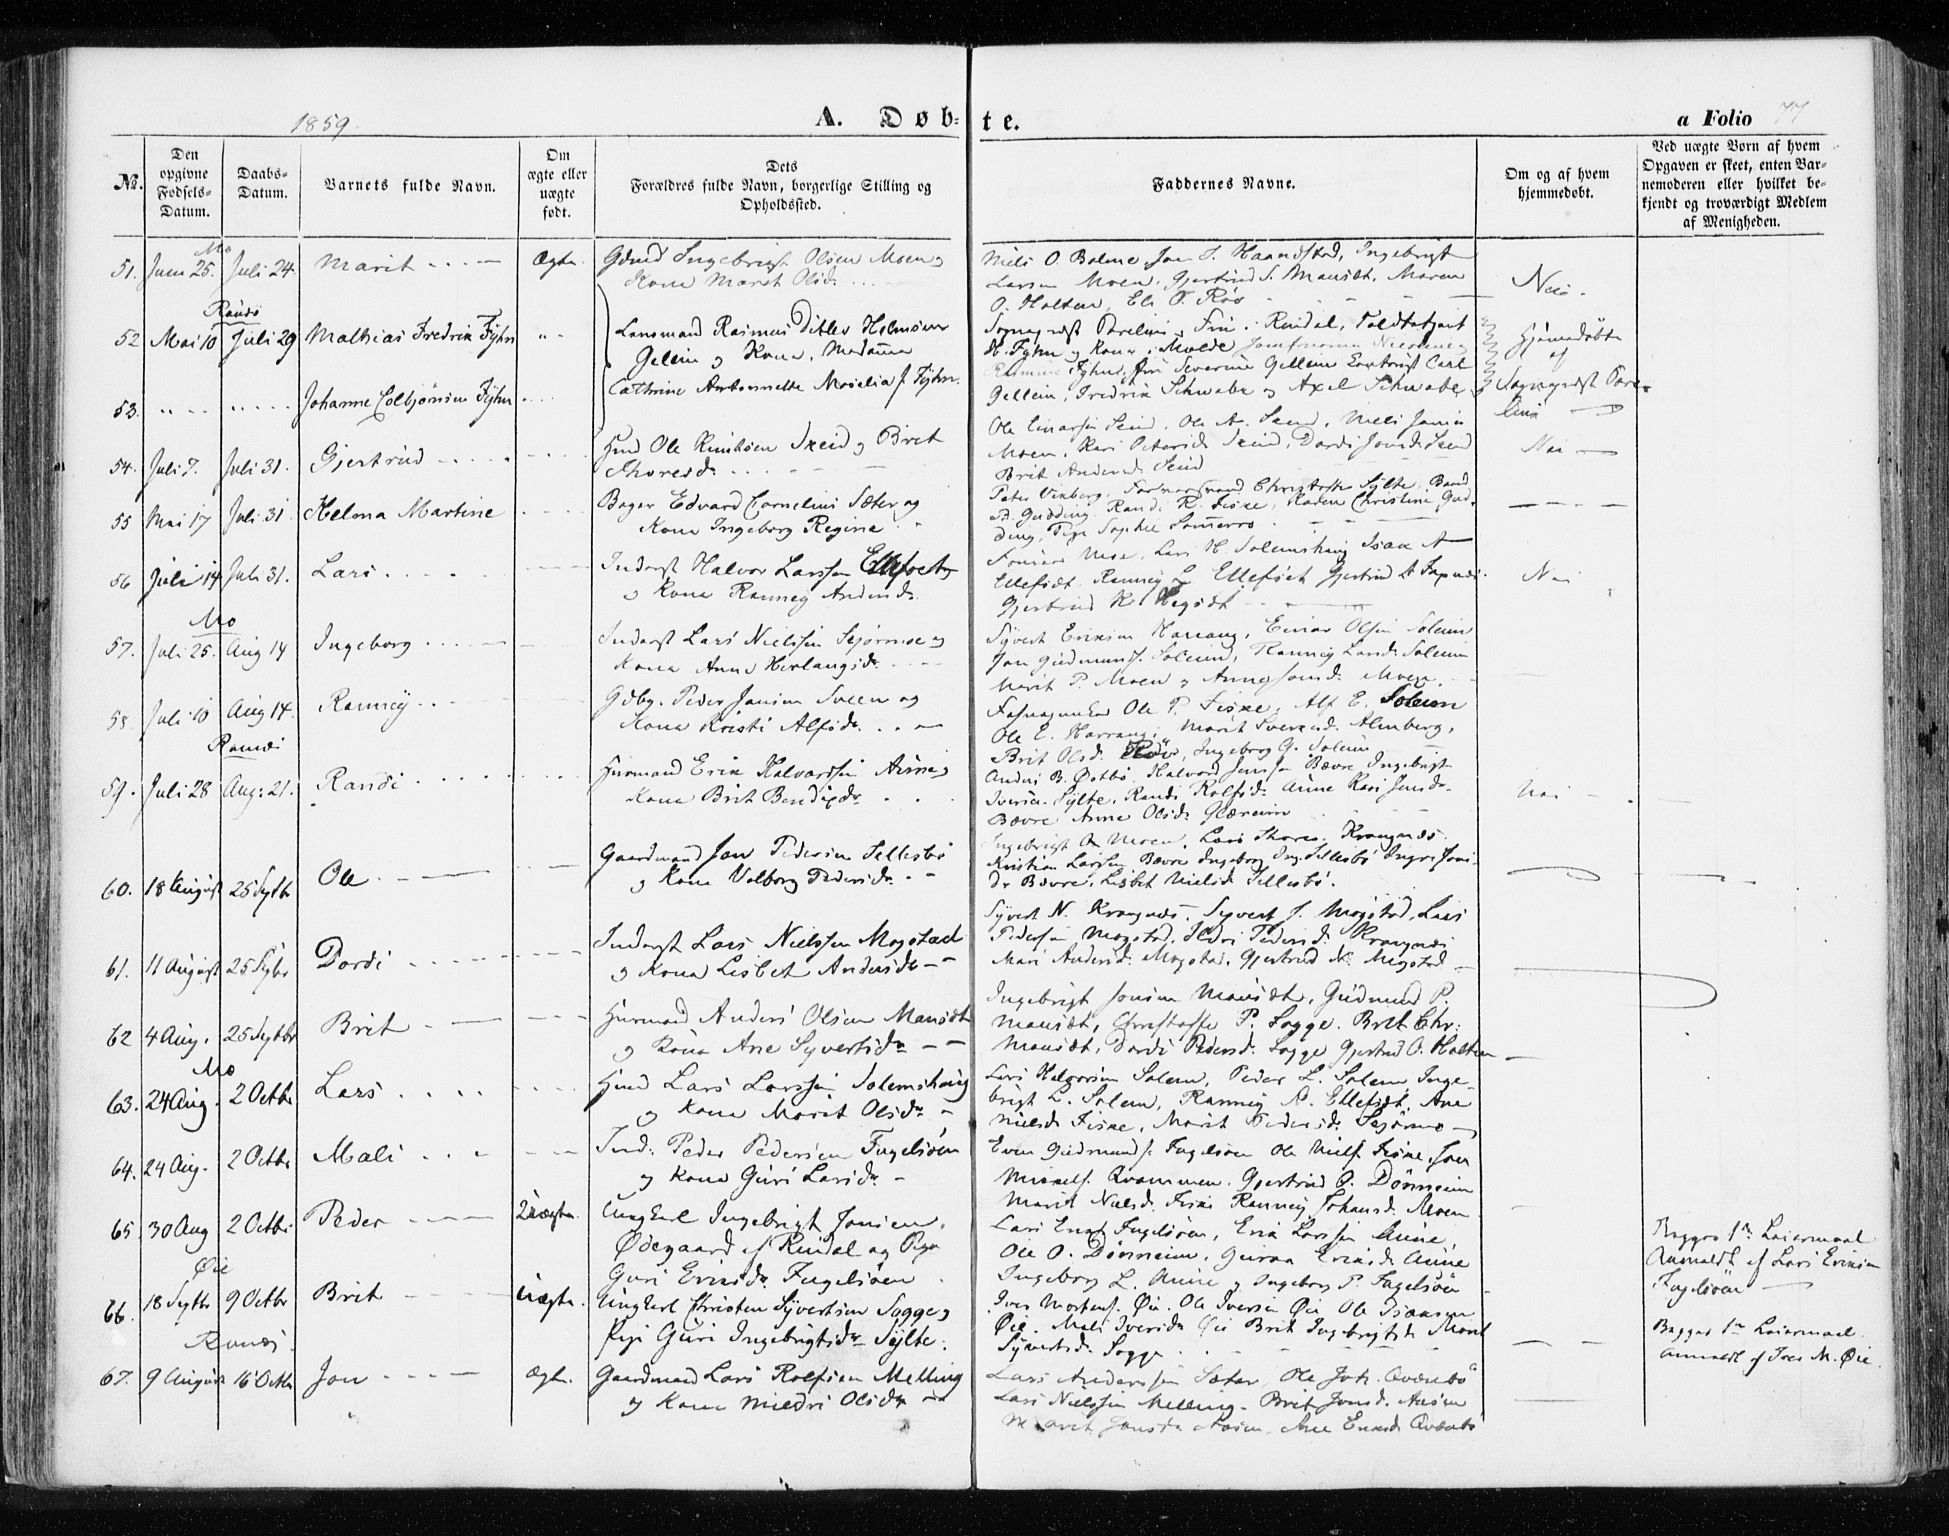 1859
A. Døb-
te.
a Folio 77
№.
Den opgivne Fødsels-Datum.
Daabs-Datum.
Barnets fulde Navn.
Om ægte eller uægte født.
Dets Forældres fulde Navn, borgerlige Stilling og Opholdssted.
Faddernes Navne.
Om og af hvem hjemmedøbt.
Ved uægte Børn af hvem Opgaven er skeet, enten Barnemoderen eller hvilket bekjendt og troværdigt Medlem af Menigheden.
Mo
51. Juni 25. Juli 24. Marit Ægte Gdmd Ingebrigt Olsen Moen og
Kone Marit Olsdr
Niels O. Bolme, Jon I. Haandstad, Ingebrigt
Larsen Moen, Gjertrud S. Mausæt, Maren
O. Holten, Eli O. Røv
Nei.
Ranæs
52 Mai 10 Juli 29 Mathias Fredrik Fyhn Lensmand Rasmus Ditlev Holmsen
Gellein og Kone, Madame
Cathrine Antonnette f. Fyhn.
Sogneprest Parelius, Rindal, Toldbetjent
Fyhn og Kone, Molde, Jomfruerne
Fyhn, Severine Gellein Carl
Gellein, Fredrik Schwabe og Axel Schwabe
Hjemmedøbte
af
Sogneprest Pare-
lius
53. Johanne Colbjørnsen Fyhn
54. Juli 7. Juli 31. Gjertrud Hmd Ole Knudsen Skeid og Brit
Thoresdr
Ole Einarsen, Ole A., Niels Jonsen
Moen, Kari Petersdr, Dordi Jonsd.
Brit Andersd.
Nei
55 Mai 17 Juli 31. Helma Martine Bager Edvard Cornelius Sæter og
Kone Ingeborg Regine
Peter Vinberg, Christoffer Sylte, Baard
Gudding, Randi R. Fiske, Karen Christine Gud-
ding, Pige Sophie
56 Juli 14 Juli 31. Lars Inderst Halvor Larssen Ellefsæt
og Kone Ranney Andersdr
Moe, Lars H. Solemshaug, Isak A
Ellefsæt, Ranney L. Ellefsæt, Gjertrud A
Gjertrud K.
Nei
Mo
57. Juli 25. Aug 14 Ingeborg Inderst Lars Nielssen Skjørmoe og
Kone Anne Herlaugsdr
Syvert Eriksen Harrang, Einar Olsen Solem
Jon Gudmunds. Solem, Ranney Larsd. Solem
Marit P. Moen og Anne Jonsd. Moen
58. Juli 10 Aug 14. Ranney Gdbg. Peder Jonsen Sveen og
Kone Kristi Alfsdr
Ole P. Fiske, Alf E. Solem
Ole E. Harrang, Marit Almberg,
Brit Olsd. Røv, Ingeborg G. Solem
Ranæs
59. Juli 28 Aug. 21. Randi Huusmand Erik Halvorssen Aune og
Kone Brit Bendixdr
Anders B. Østbø, Halvor Jonssen Bævre, Ingebrigt
Iversen Sylte, Randi Rolfsdr Aune, Kari Jonsdr
Bævre, Anne Olsdr Glærem
Nei
60. 18 August 25 Septbr Ole Gaardmand Jon Pedersen Settesbø
og Kone Valborg Pedersdr
Ingebrigt O. Moen, Lars Thores. Krangnæs
Kristian Larssen Bævre, Ingeborg Settesbø, Jons-
dr Bævre, Lisbet Nielsd. Settesbø.
61. 11 August 25 Septbr Dordi Inderst Lars Nielssen Mogstad
og Kone Lisbet Andersdr
Syvert N. Krangnæs, Syvert J. Mogstad, Lars
Pedersen Mogstad, Pedersd. Krangnæs
Mari Andersd. Mogstad, Gjertrud N. Mogstad
62 4 Aug. 25 Septbr Brit Huusmand Anders Olsen Mausæt
og Kone Ane Syvertsdr
Ingebrigt Jonsen Mausæt, Gudmund P.
Mausæt, Christoffer P. Sogge, Brit Chr.
Mausæt, Dordi Pedersd. Sogge, Gjertrud O. Holten
Mo
63. 24 Aug. 2 Octbr Lars Hmd Lars Larssen Solemshaug
og Kone Marit Olsdr
Lars Halvorsen Solem, Peder L. Solem, Inge-
brigt L. Solem, Ranney A. Ellefsæt, Ane
Nielsd. Fiske, Marit Pedersd. Skjørmo
64. 24 Aug. 2 Octbr Mali Ind. Peder Pedersen Fugelsøen
og Kone Guri Larsdr
Even Gudmunds. Fugelsøen, Ole Niels. Fiske, Jon
Mikkels. Kvammen, Gjertrud O. Dønnheim
Marit Nielsd. Fiske, Ranney Johansd. Moen
65 30 Aug 2 Octbr Peder Uægte Ungkarl Ingebrigt Jonsen
Ødegaard af Rindal og Pige
Guri Eriksdr Fugelsøen
Lars Fugelsøen, Erik Larssen Aune,
Ole O. Dønnheim, Guroe Eriksd. Aune
Ingeborg L. Aune og Ingeborg P. Fugelsøen
Begges 1te Leiermaal
Anmeldt af Lars Eriksen
Fugelsøen
Øie
66. 18 Septbr 9 Octbr Brit Uægte. Ungkarl Christen Syvertsen Sogge og
Pige Guri Ingebrigtsdr Sylte.
Iver Mortens. Øie, Ole Iversen Øie, Ole Isaksen
Øie, Mali Iversdr Øie, Brit Ingebrigtsdr, Marit
Syvertsd. Sogge
Begges 1te Leiermaal.
anmeldt af Iver M. Øie.
Ranæs
67. 9 August 16 Octbr Jon Ægte. Gaardmand Lars Rolfsen Melling
og Kone Mildri Olsdr
Lars Anderssen Sæter, Ole Joh. Qvænbø
Lars Nielssen Melling, Brit Jonsd. Aasen
Marit Jonsdr Aasen, Ane Ericsd. Qvænbø